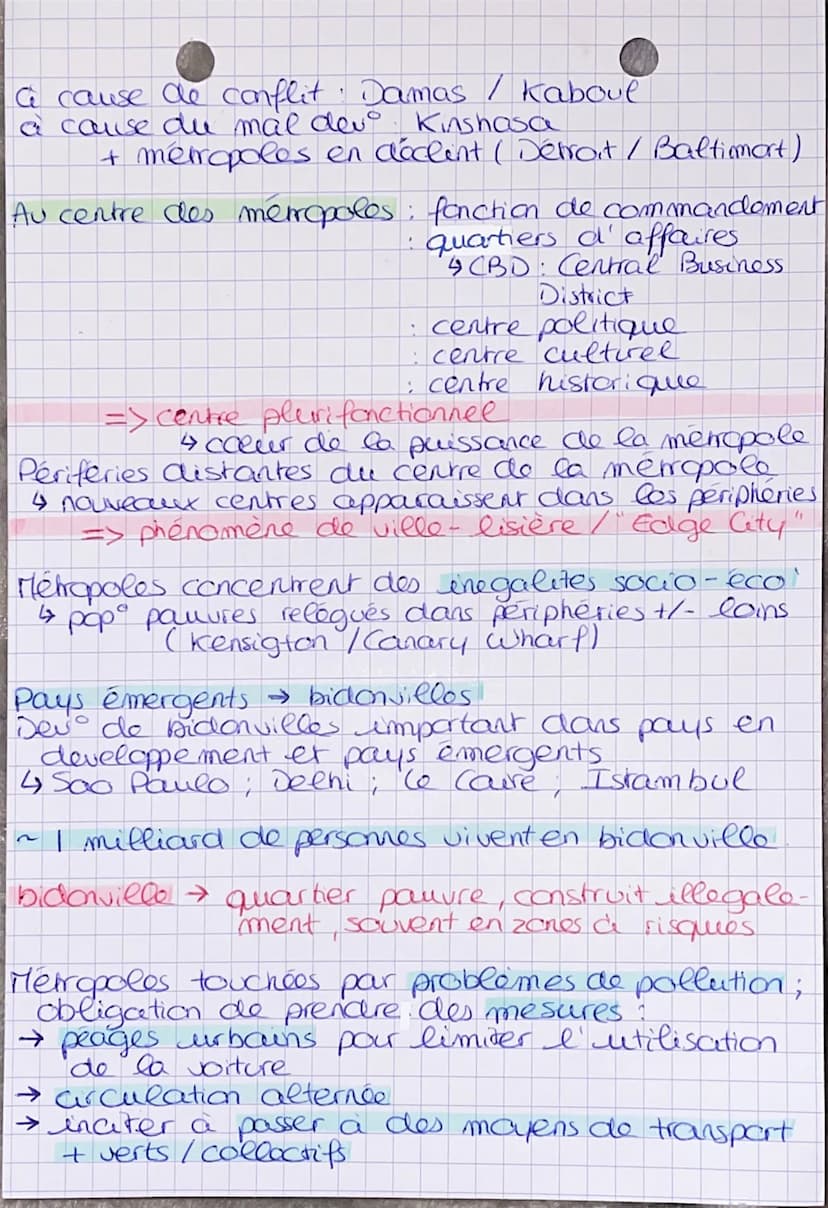 à cause de conflit : Damas / Kaboul
à cause du mal dev° : Kinshasa
+ métropoles en déclint (Détroit / Baltimort)
Au centre des métropoles : fonction de commandement
: quartiers d'affaires
↳ CBD : Central Business
District
: centre politique
: centre culturel
: centre historique
=> centre plurifonctionnel
↳ cœur de la puissance de la métropole
Périféries distantes du centre de la métropole
↳ nouveaux centres apparaissent dans les périphéries
=> phénomène de ville-lisière / "Edge City"
Métropoles concentrent des inégalités socio-éco
↳ pop° pauvres relégués dans périphéries +/- loins
(Kensigton / Canary Wharf)
Pays émergents → bidonvilles
Dev° de bidonvilles important dans pays en
developpement et pays émergents
↳ Sao Paulo ; Delhi ; Le Caire ; Istambul
~ 1 milliard de personnes vivent en bidonville
bidonville → quartier pauvre, construit illégale-
ment, souvent en zones à risques
Métropoles touchées par problèmes de pollution ;
obligation de prendre des mesures :
→ péages urbains pour limiter l'utilisation
de la voiture
→ circulation alternée
→ inciter à passer à des moyens de transport
+ verts / collectifs